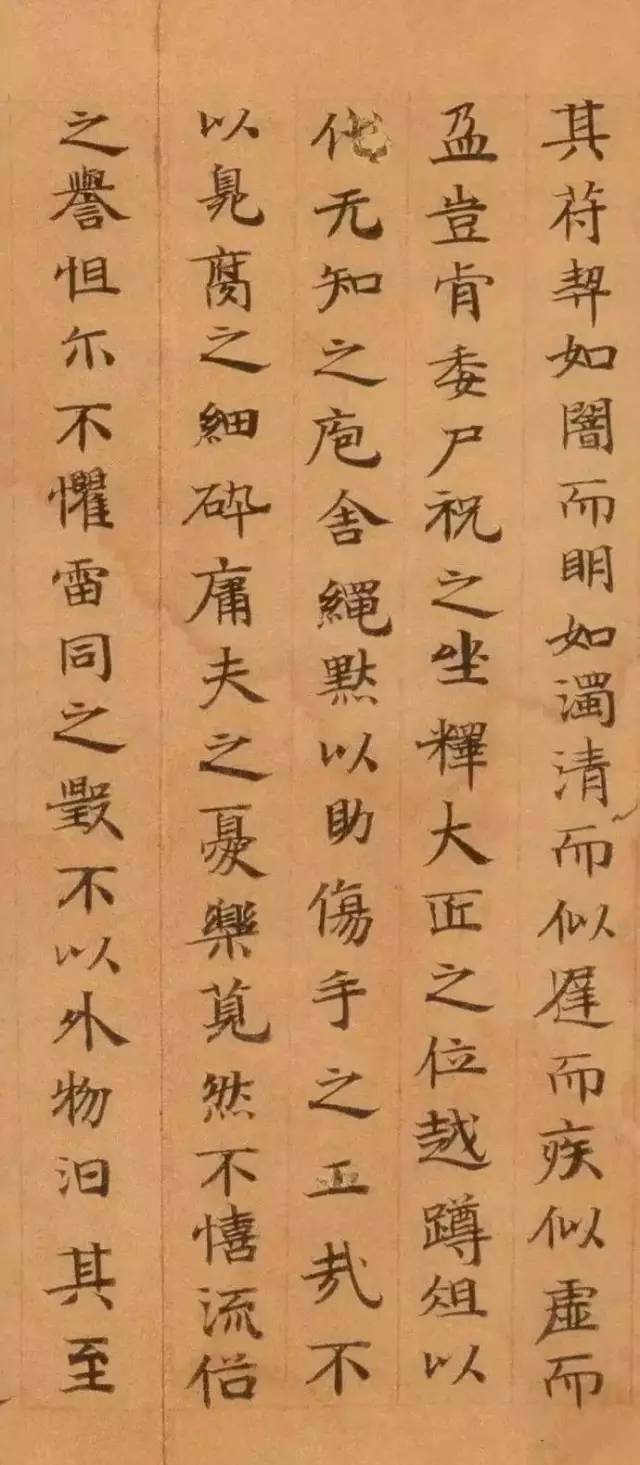 其苻契如闇而明如濁清而似遲而疾似虛而
盈豈肯委尸祝之坐釋大匠之位越蹲俎以
代无知之庖舍繩黙以助傷手之工㢤不
以臰腐之細碎庸夫之憂樂莧然不憘流俗
之譽怛尒不懼雷同之毀不以外物汩其至